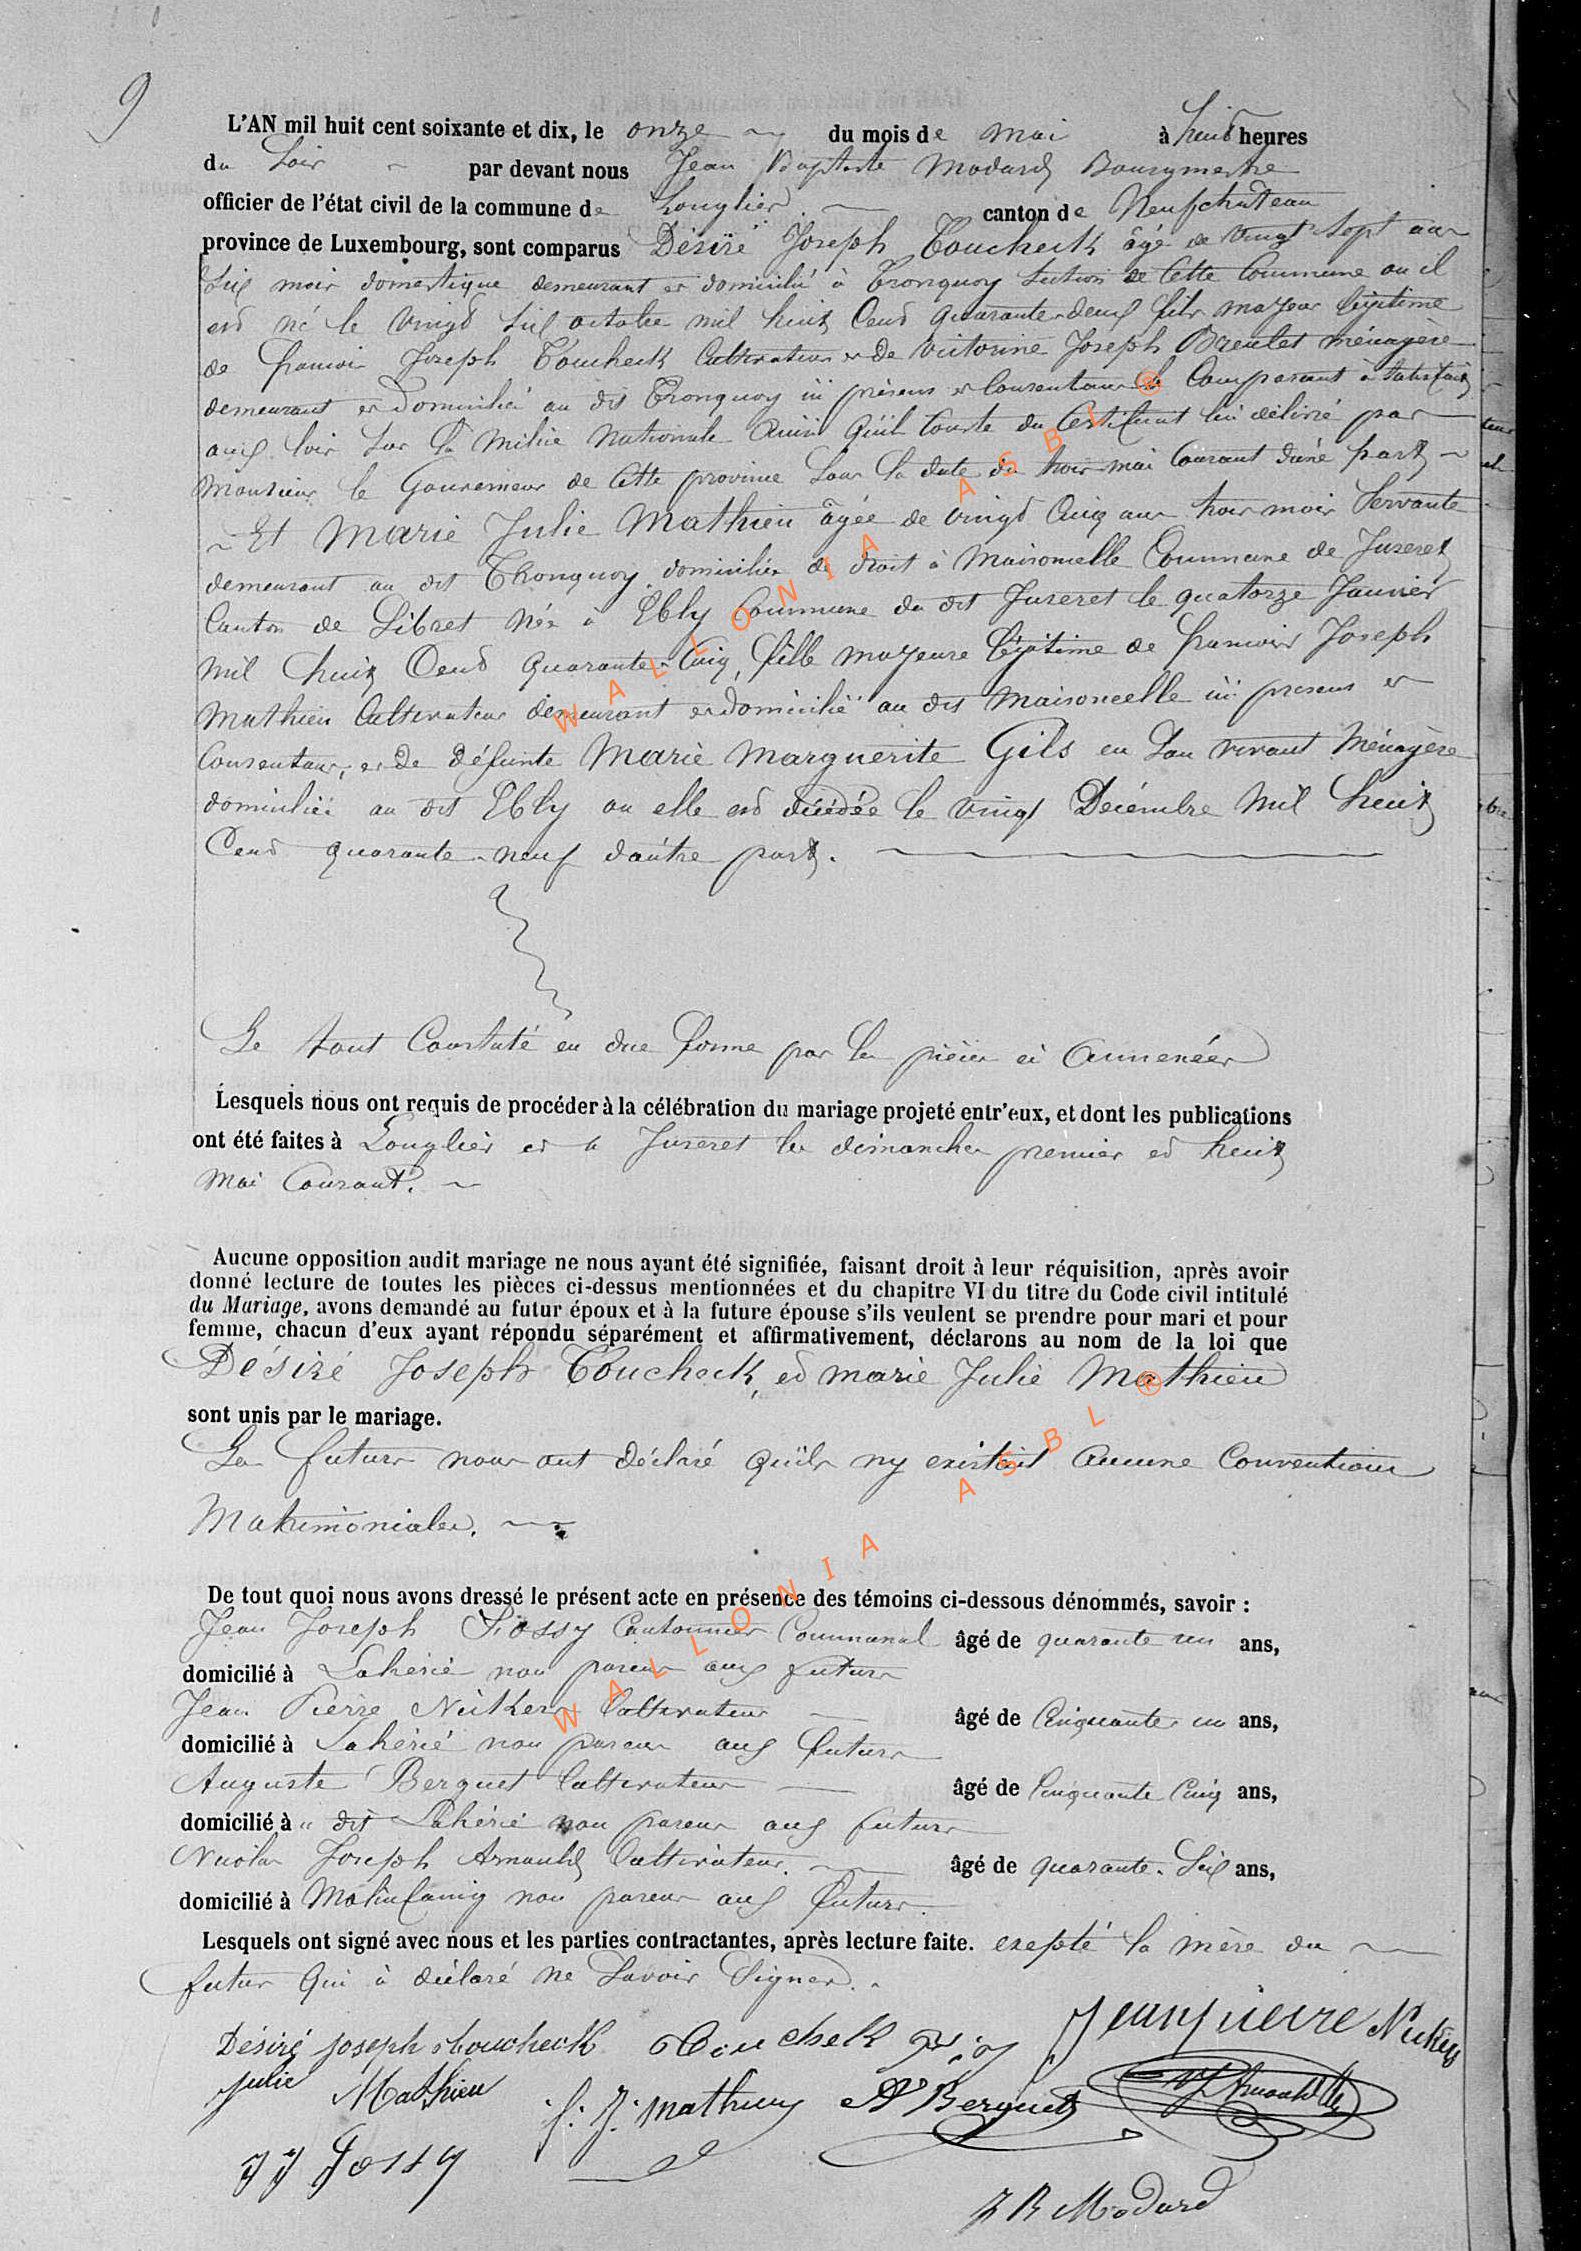 9
L'AN mil huit cent soixante et dix, le onze du mois de mai à huit heures
du Soir par devant nous Jean Baptiste Modard Bourgmestre
officier de l'état civil de la commune de Longlier canton de Neufchateau
province de Luxembourg, sont comparus Désiré Joseph Toucheck âgé de vingt sept ans
Six mois domestique demeurant et domicilié à Tronquoy Section de Cette Commune ou il
est né le Vingt Six octobre mil huit Cent quarante-deux fils majeur légitime
de françois Joseph Toucheck Cultivateur et de Victorine Joseph Breulet ménagère
demeurant et Domicilié au dit Tronquoy ici présens et Consentans le Comparant à Satisfait
aux lois Sur la milice Nationale Ainsi Qu'il Conste du Certificat lui délivré par
Monsieur le Gouverneur de Cette province Sous la date du trois mai Courant d'une part
Et Marie Julie Mathieu âgée de vingt Cinq ans trois mois Servante
demeurant au dit Thonquoy domiciliée de droit à Maisoncelle Commune de Juseret
Canton de Sibret née à Ebly Commune du dit Juseret le quatorze Janvier
mil huit Cent quarante-Cinq, fille majeure légitime de françois Joseph
Mathieu Cultivateur demeurant et domicilié au dit Maisoncelle ici présens et
Consentans, et de défunte Marie Marguerite Gils en Son vivant Ménagère
domiciliée au dit Ebly ou elle est décédée le vingt Décembre Mil huit
Cent quarante-neuf d'autre part.
Le tout Constaté en due forme par les pièces ci Annexées
Lesquels nous ont requis de procéder à la célébration du mariage projeté entr'eux, et dont les publications
ont été faites à Longlier et à Juseret les dimanches premier et huit
Mai Courant.
Aucune opposition audit mariage ne nous ayant été signifiée, faisant droit à leur réquisition, après avoir
donné lecture de toutes les pièces ci-dessus mentionnées et du chapitre VI du titre du Code civil intitulé
du Mariage, avons demandé au futur époux et à la future épouse s'ils veulent se prendre pour mari et pour
femme, chacun d'eux ayant répondu séparément et affirmativement, déclarons au nom de la loi que
Désiré Joseph Toucheck, et marie Julie Mathieu
sont unis par le mariage.
Les futurs nous ont déclaré Qu'ils ny existait Aucune Conventions
Matrimoniales.
De tout quoi nous avons dressé le présent acte en présence des témoins ci-dessous dénommés, savoir :
Jean Joseph Fossy Cantonnier Communal âgé de quarante un ans,
domicilié à Lahérie non parens aux futurs
Jean Pierre Nickers Cultivateur âgé de Cinquante un ans,
domicilié à Lahérié non parens aux futurs
Auguste Berguet Cultivateur âgé de Cinquante Cinq ans,
domicilié à dit Lahérie non parens aux futurs
Nicolas Joseph Arnould Cultivateur âgé de quarante-Six ans,
domicilié à Molinfaing non parens aux futurs
Lesquels ont signé avec nous et les parties contractantes, après lecture faite. exepté la mère du
futur Qui à déclaré ne Savoir Signer.
Désiré joseph toucheck Toucheck Jeanpierre Nickers
julie Mathieu f. J. mathieu A Berguet NJ Arnould
JJ Fossy
J B Modard
WALLONIA ASBL ®
WALLONIA ASBL ®